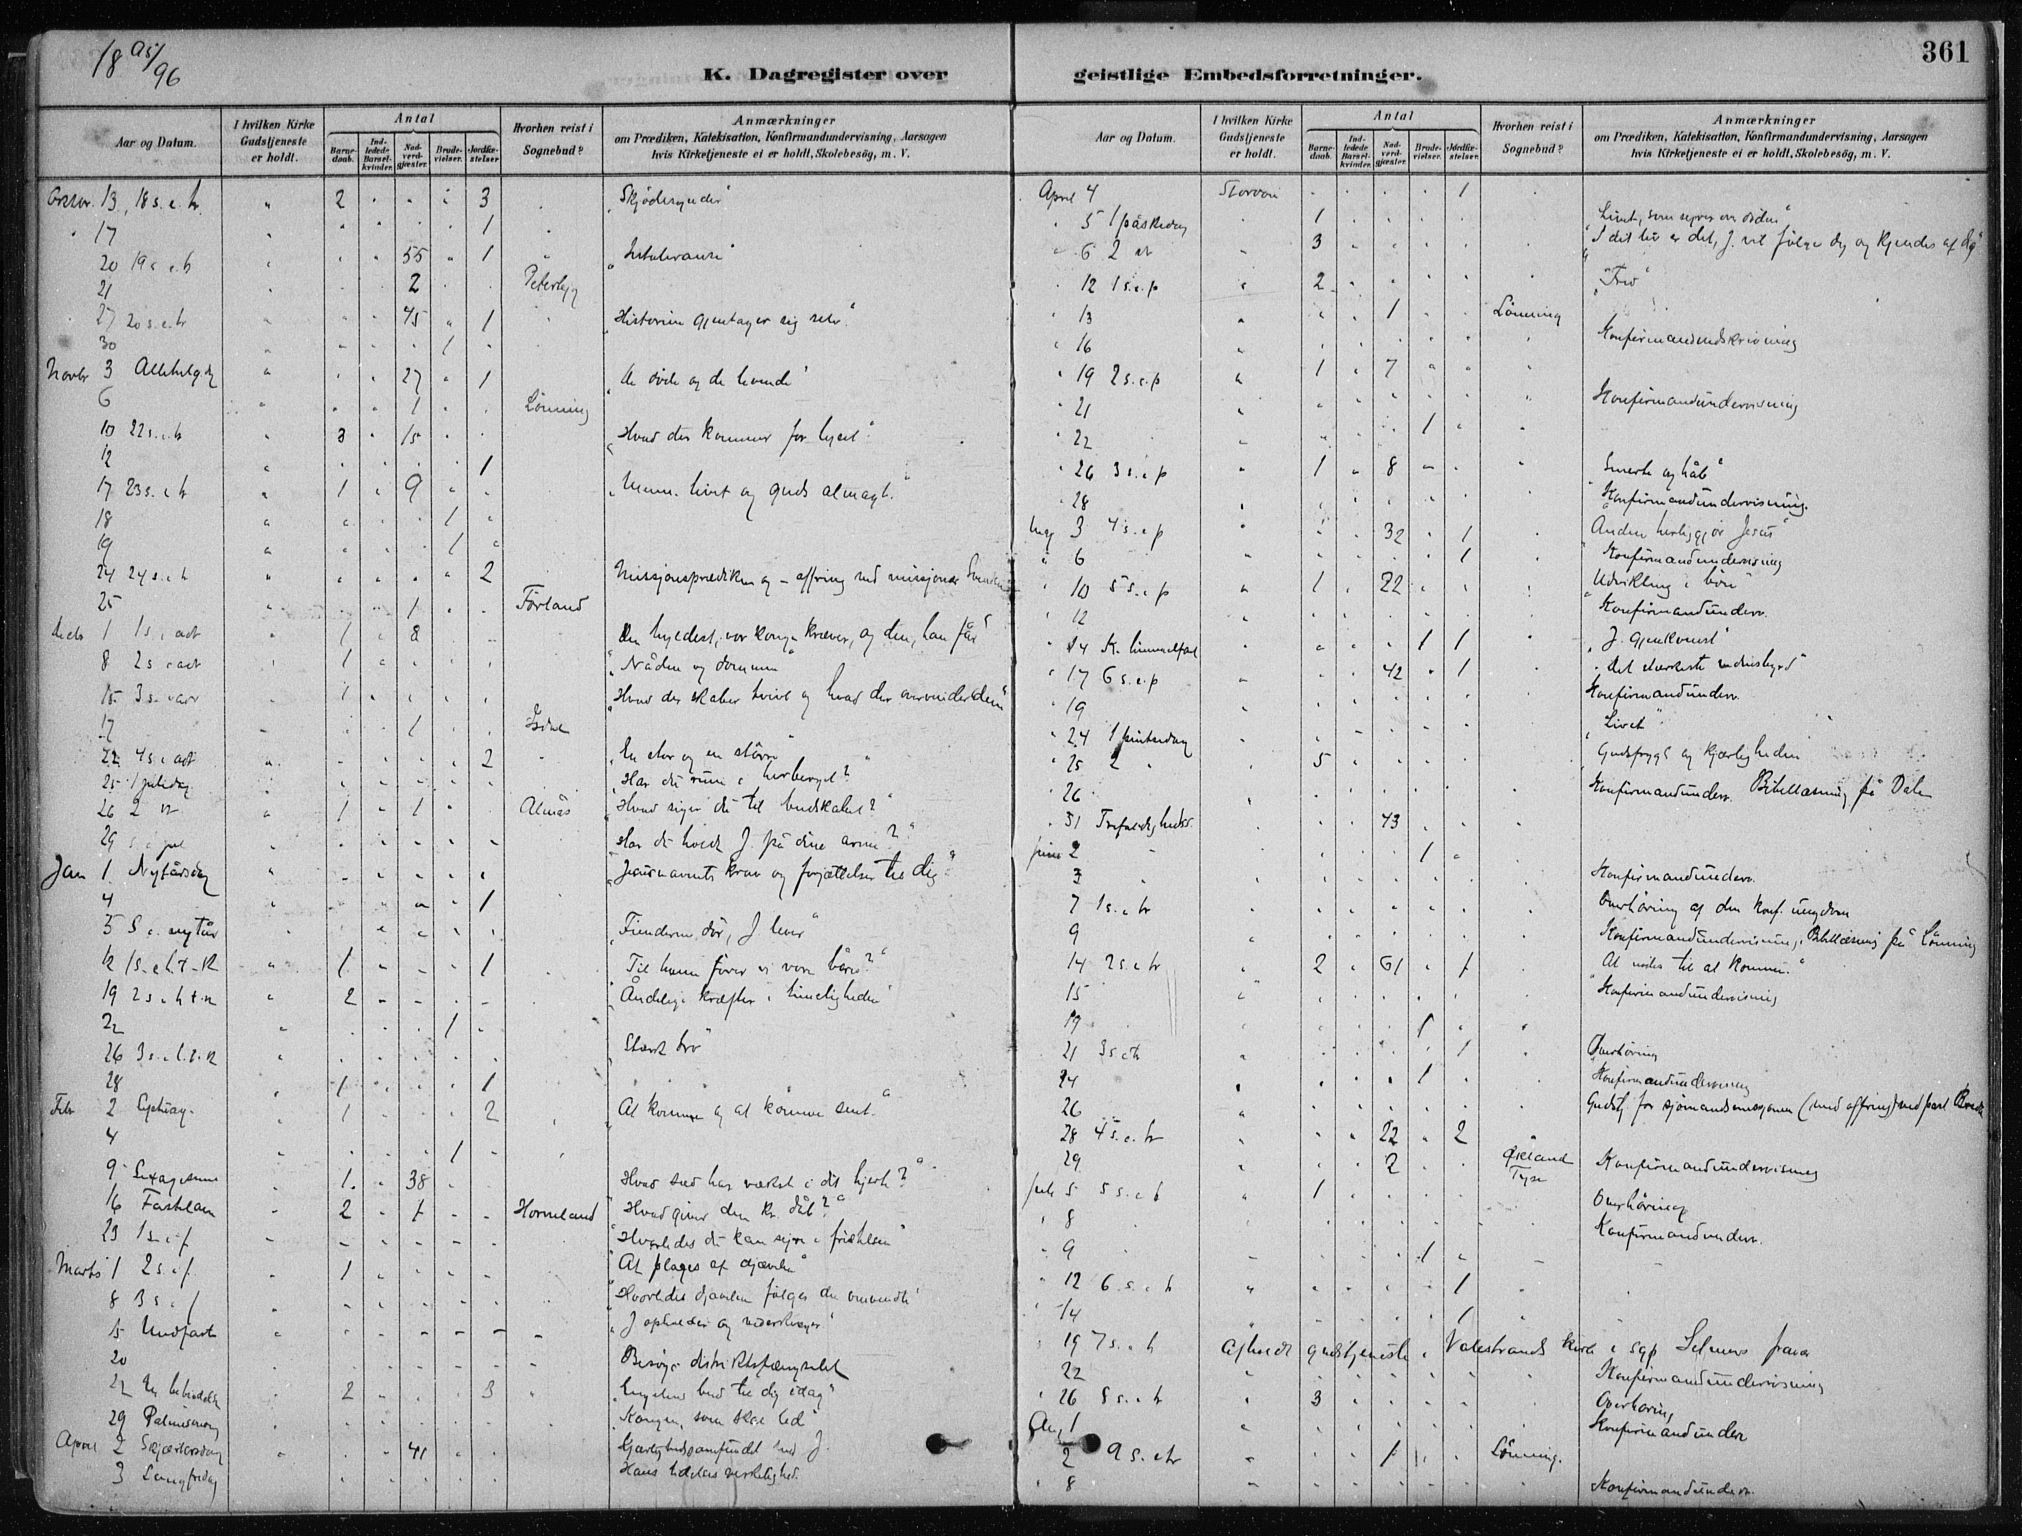 18 95/96
K. Dagregister over geistlige Embedsforretninger.
361
Aar og Datum.
I hvilken Kirke Gudstjeneste er holdt.
Antal
Barne-daab.
Ind-ledede Barsel-kvinder.
Nad-verd-gjæster.
Brude-vielser.
Jordfæ-stelser
Hvorhen reist i Sognebud?
Anmærkninger
om Prædiken, Katekisation, Konfirmandundervisning, Aarsagen
hvis Kirketjeneste ei er holdt, Skolebesög, m. V.
13, 18 s. e. tr. 2 3
17 1
20 19 s. e. tr 55 1
21 2
27 20 s. e. tr 45 1 "Historien gjentager sig selv."
30 1
Novbr 3 27 1 "De døde og de levende"
6 1 Lönning
10 22 s. e. tr 3 15 "Hvad der kommer for lyset."
12 1
17 23 s. e. tr 1 9 liv og guds almagt."
18 1
19 1
24 24 s. e. tr 2
25 1 Förland
1 1 s. i adt 1 8 hyldest, vor konge kræver, og den, han får"
8 2 s. i adt 1 "Nåden og dommen"
15 3 s. i adv 1 "Hvad der skaber tvivl og hvad der overvinder den"
17 1
22 4 s. i adt 2 "En stor og en større"
25 1 juledag "Har du rum i herberget?"
26 2 1 1 Almås "Hvad siger du til budskabet?"
29 s. e. jul "Har du havt J. på dine arme?"
Jan 1 Nytårsdag krav og forjættelser til dig"
4 1
5 S. e. nytår "Fienderne dør, J. lever"
12 1 s. e. h. t. k 1 1 "Til ham fører vi vore
19 2 s. e. h. t. k 2 "Åndelige kræfter i timeligheden"
22 1
26 3 s. e. h. t. k "Stærk tro"
28 1 1
Febr 2 1 2 "At komme og at komme sent."
4 1
9 1 38 "Hvad sæd har vækst i dit hjerte?"
16 Fastelavn 2 1 Horneland "Hvad giver den kr. dåb?"
23 1 s. i f "Hvorledes du kan sejre i fristelsen"
Marts 1 2 s. i f. 1 "At plages af djævelen"
8 3 s. i f "Hvorledes djævelen følger den omvendte"
15 Midfaste "J. opholder og
20 Besøg i distriktsfængselet
22 2 3 "Engelens bud til dig idag"
29 Palmesøndag "Kongen, som skal
April 2 Skjærtorsdag 41 med J.
3 Langfredag "Hans lidelses virkelighed.
Aar og Datum.
I hvilken Kirke Gudstjeneste er holdt.
Antal
Barne-daab.
Ind-ledede Barsel-kvinder.
Nad-verd-gjæster.
Brude-vielser.
Jordfæ-stelser.
Hvorhen reist i Sognebud?
Anmærkninger
om Prædiken, Katekisation, Konfirmandundervisning, Aarsagen
hvis Kirketjeneste ei er holdt, Skolebesög, m. V.
April 4 1
5 1 påskedag 1 "Livet, som sejrer over døden"
6 2 3 "I dit liv er det, J. vil følge dig og kjendes af dig"
12 1 s. e. p 2
13 1 Lönning
16 Konfirmandindskrivning
19 2 s. e. p 1 7
21 Konfirmandundervisning
22 1
26 3 s. e. p 1 8 "Smerte og håb"
28 Konfirmandundervisning.
3 4 s. e. p 32 1 "Anden herliggjør Jesus"
6 1 Konfirmandundervisning
10 5 s. e. p 1 22 "Udvikling i bøn"
12 Konfirmandunderv.
14 K. himmelfart 1 1 "J. gjenkomst"
17 6 s. e. p 42 1 "Det stærkeste vidnesbyrd"
19 Konfirmandunderv.
24 1 pintsedag "Livet"
25 2 5 Gudsfrygt og kjærligheden
26 Konfirmandunderv. Bibellæsning på Dale
31 Trefoldighedss. 43
juni 2 1
3 Konfirmandunderv.
7 1 s. e. tr Overhøring af den konf. ungdom
9 Konfirmandundervisning. Bibellæsning på Lönning
14 2 s. e. tr 2 61 1 "At nødes til at komme."
15 Konfirmandundervisning
19 1
21 3 s. e. tr 1 Overhøring
24 1 Konfirmandundervisning
26 Gudstj. for sjømandsmissjonen (med offring) ved past.
28 4 s. e. tr 22 2
29 2 Økland Tyse Konfirmandundervisning
juli 5 5 s. e. t 1 Overhøring
8 Konfirmandunderv.
9 1
12 6 s. e. tr 1
14 1
19 7 s. e. tr Afholdt gudstjeneste i Valestrands kirke i sgp Selmers fravær
22 Konfirmandundervisning
26 8 s. e. tr 3 Overhøring
Aug 1 Konfirmandunderv
2 9 s. e. tr 1 Lönning.
8 Konfirmandunderv.